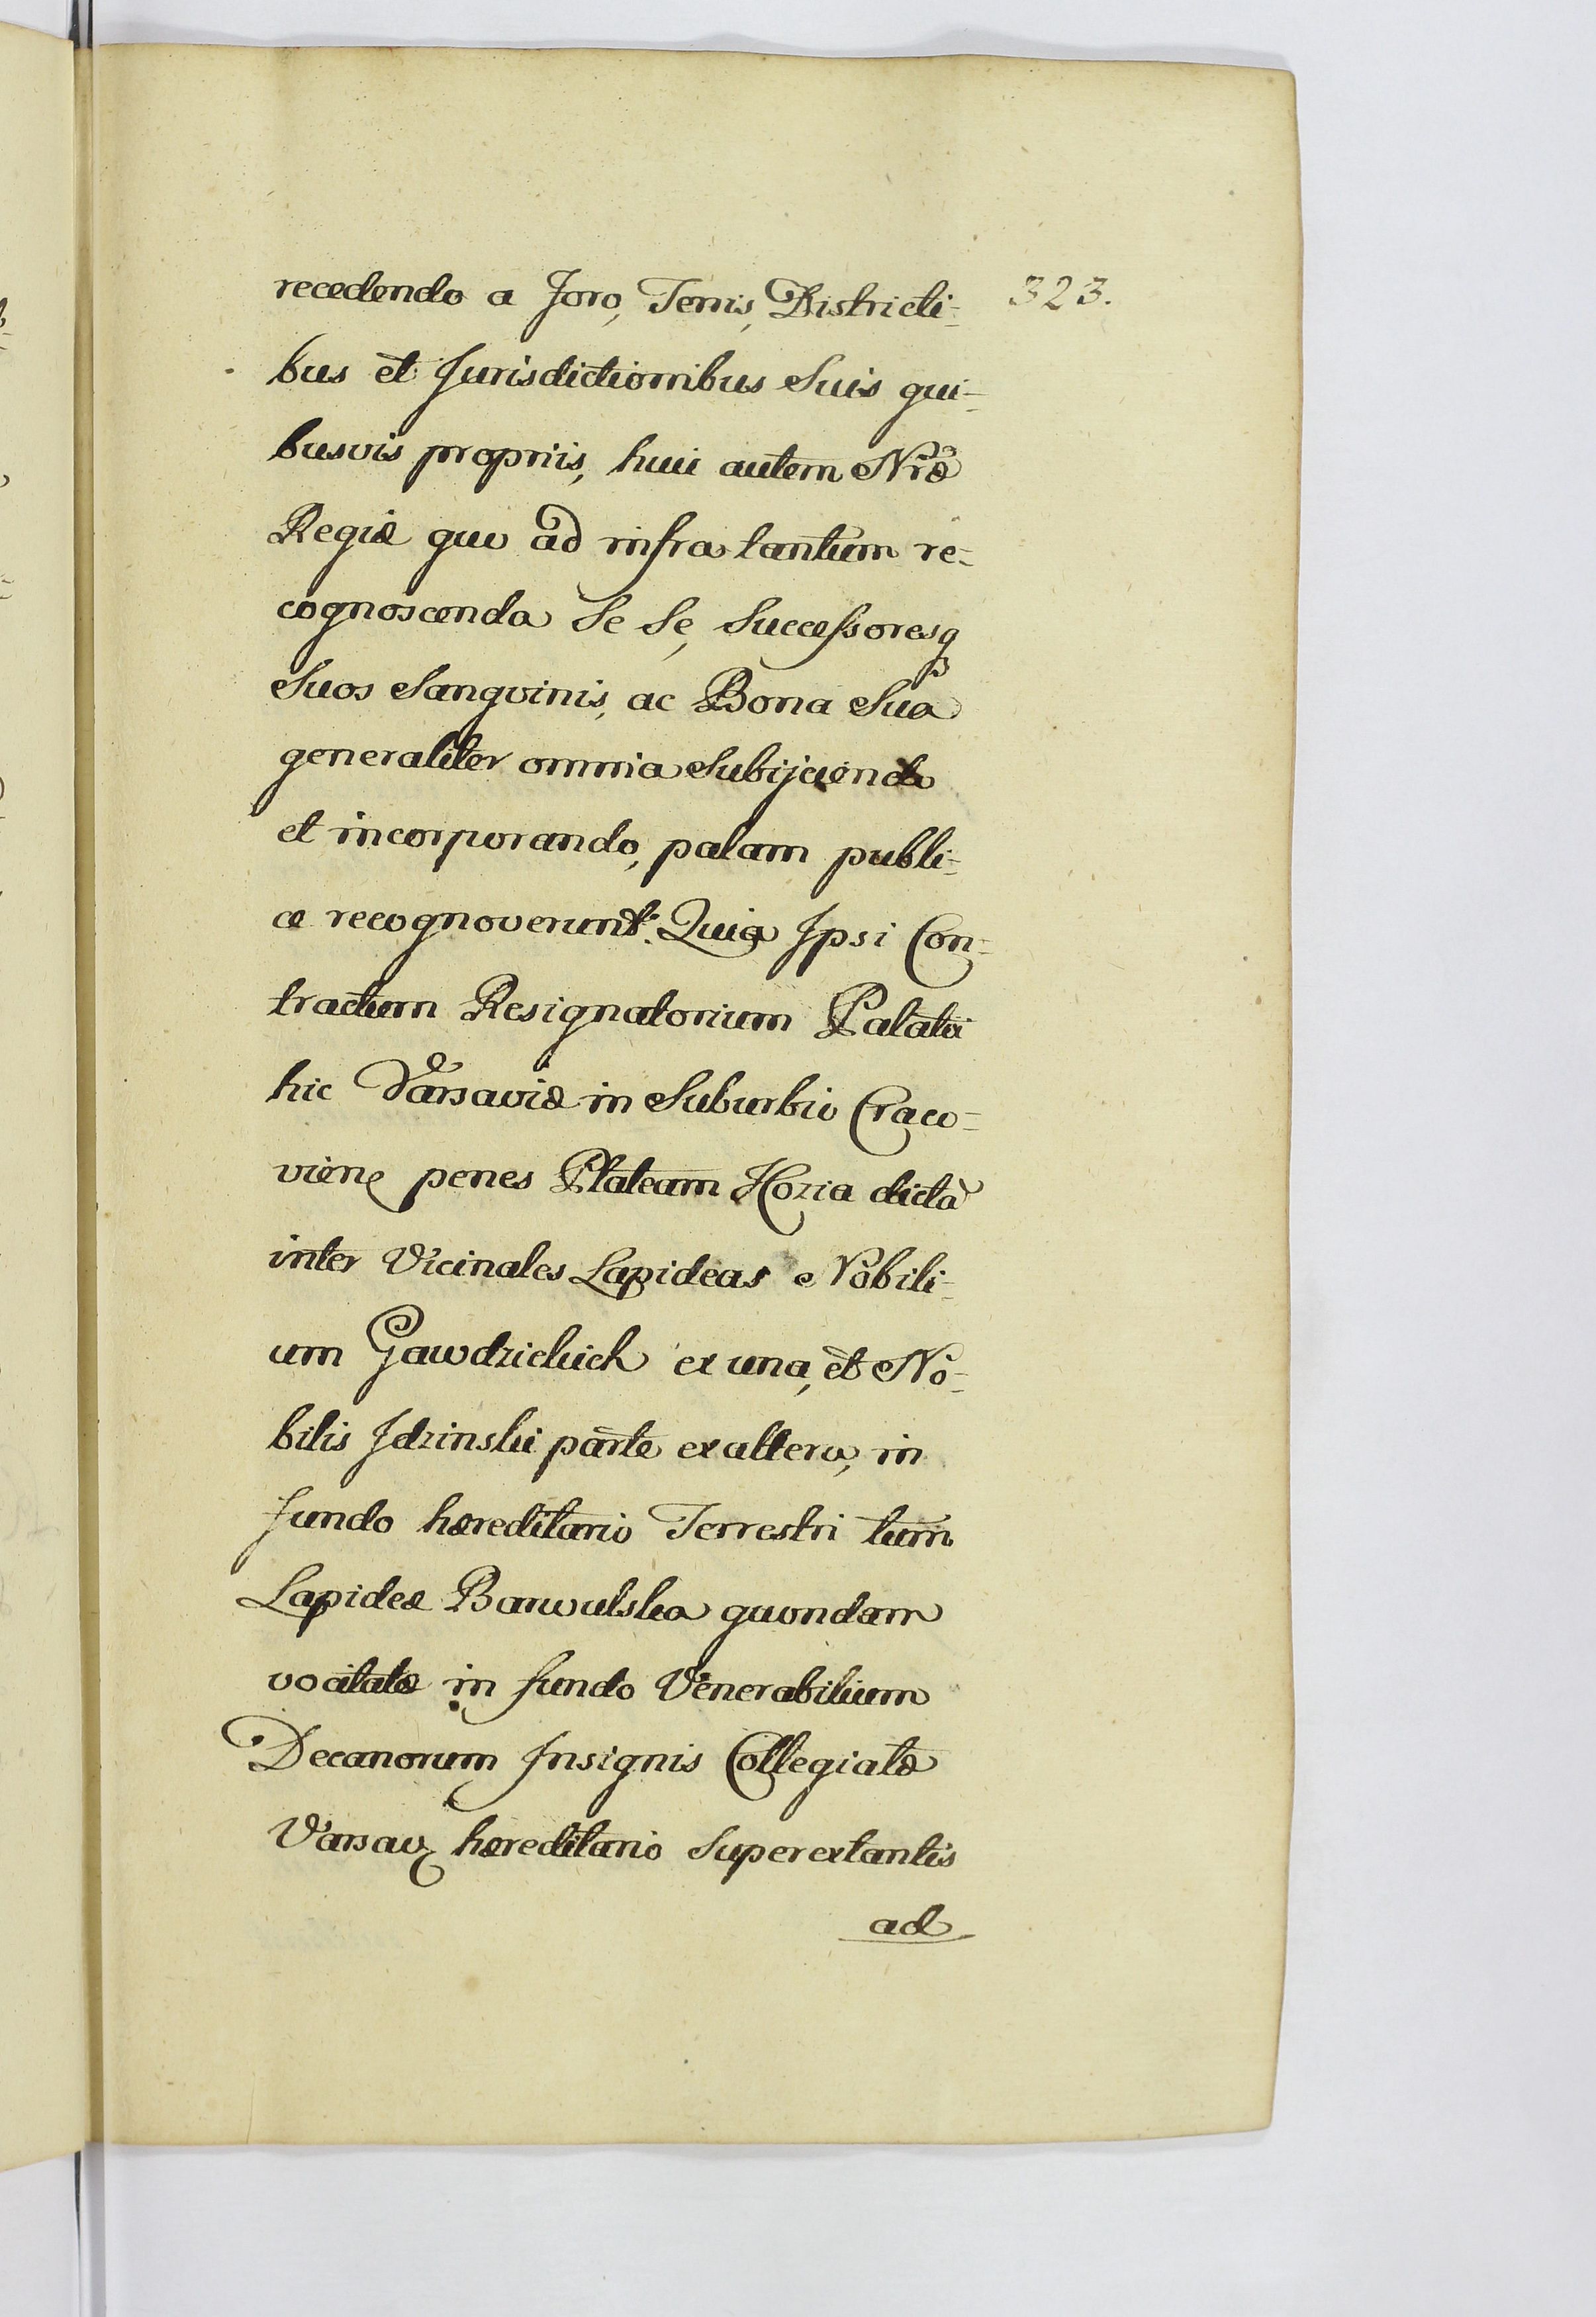 323.
recedendo a Foro, Terris, Districti-
bus et Jurisdictionibus Suis qui-
busvis propriis, huic autem Nræ
Regiæ quo ad infra tantum re-
cognoscenda Se Se, Successoresq
Suos Sangvinis, ac Bona Sua
generaliter omnia Subijciendo
et incorporando, palam publi-
ce recognoverunt. Quia Ipsi Con-
tractum Resignatorium Palatii
hic Varsaviæ in Suburbio Craco-
vien penes Plateam Kozia dictã
inter Vicinales Lapideas Nobili-
um Gawdzickich ex una, et No-
bilis Jdzinski parte ex altera, in
fundo hæreditario Terrestri tum
Lapideæ Barwulska quondam
vocitatæ in fundo Venerabilium
Decanorum Insignis Collegiatæ
Varsav hæreditario Superextantis
ad